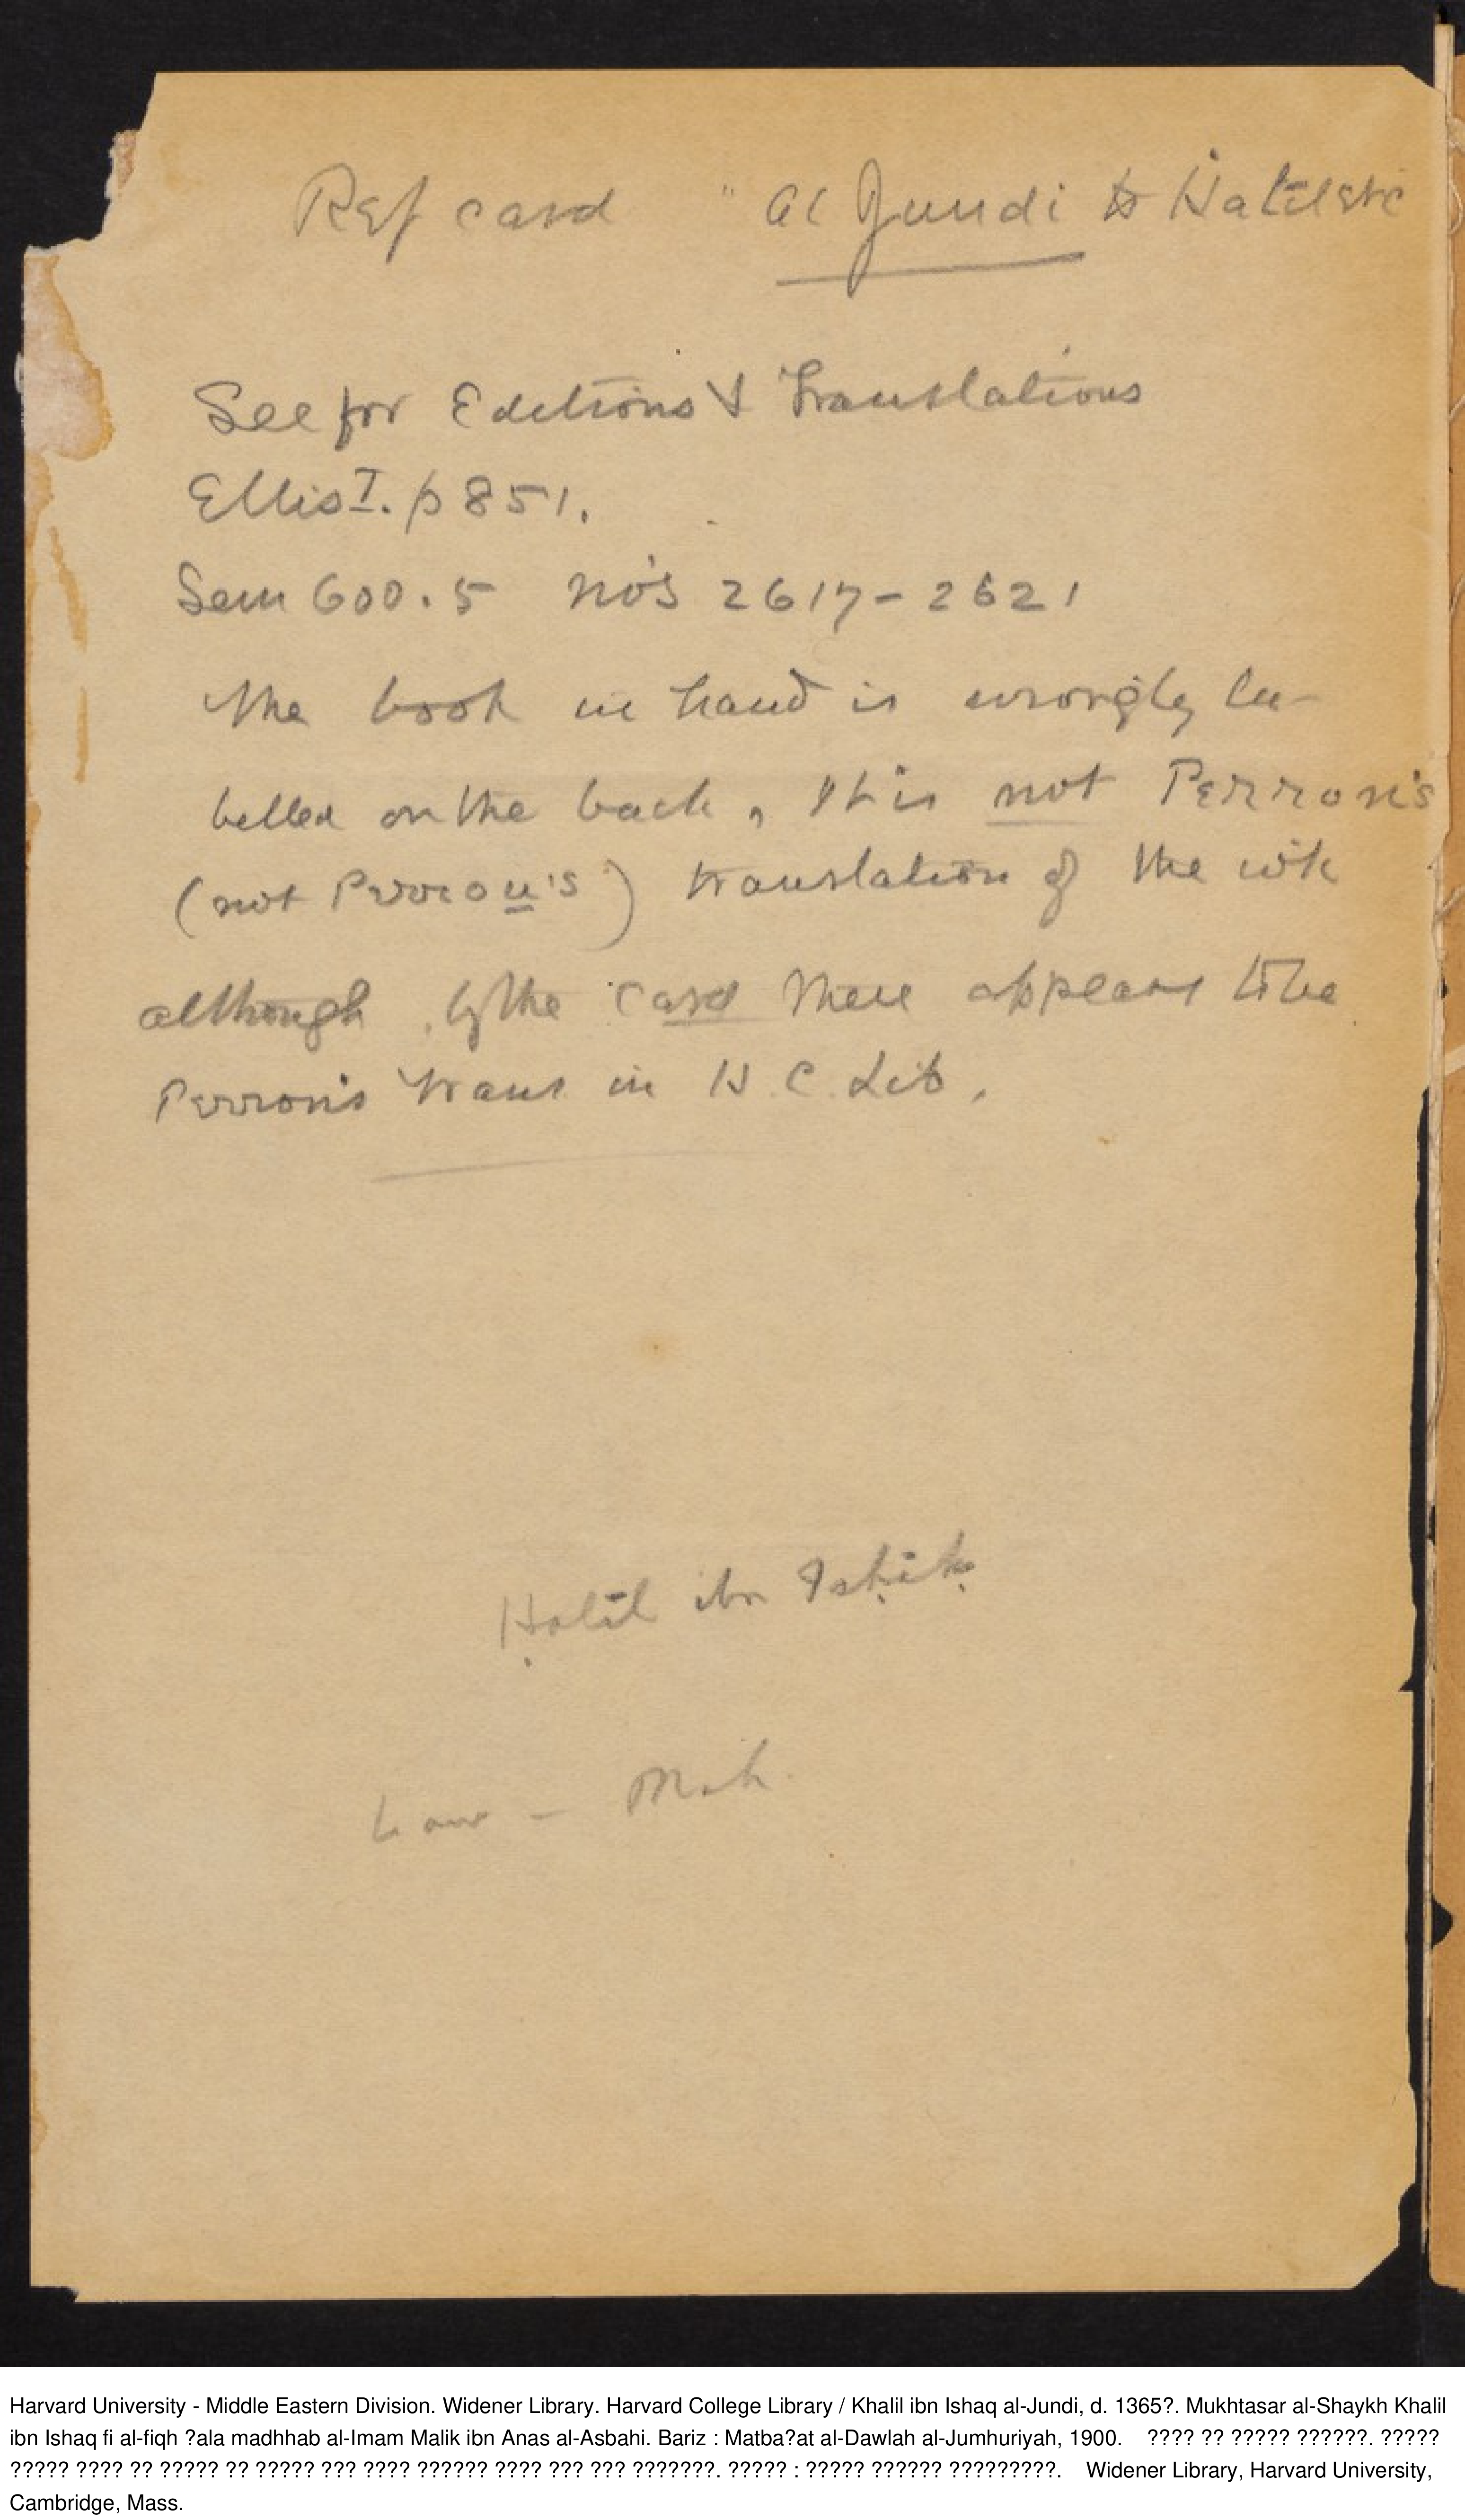 Ref card " al Jundi to Halil etc
See for Editions & Translations
Ellis I. p 851.
Sem 600.5 no's 2617-2621
The book in hand is wrongly la-
belled on the back, It is not Perron's
(not Perrou's) translation of the wk
although, by the card there appears to be
Perron's trans in H.C. Lib.
Ḥalīl ibn Isḥāḳ
Law - Moh.
Harvard University - Middle Eastern Division. Widener Library. Harvard College Library / Khalil ibn Ishaq al-Jundi, d. 1365?. Mukhtasar al-Shaykh Khalil
ibn Ishaq fi al-fiqh ?ala madhhab al-Imam Malik ibn Anas al-Asbahi. Bariz : Matba?at al-Dawlah al-Jumhuriyah, 1900. ???? ?? ????? ??????. ?????
????? ???? ?? ????? ?? ????? ??? ???? ?????? ???? ??? ??? ???????. ????? : ????? ?????? ?????????. Widener Library, Harvard University,
Cambridge, Mass.